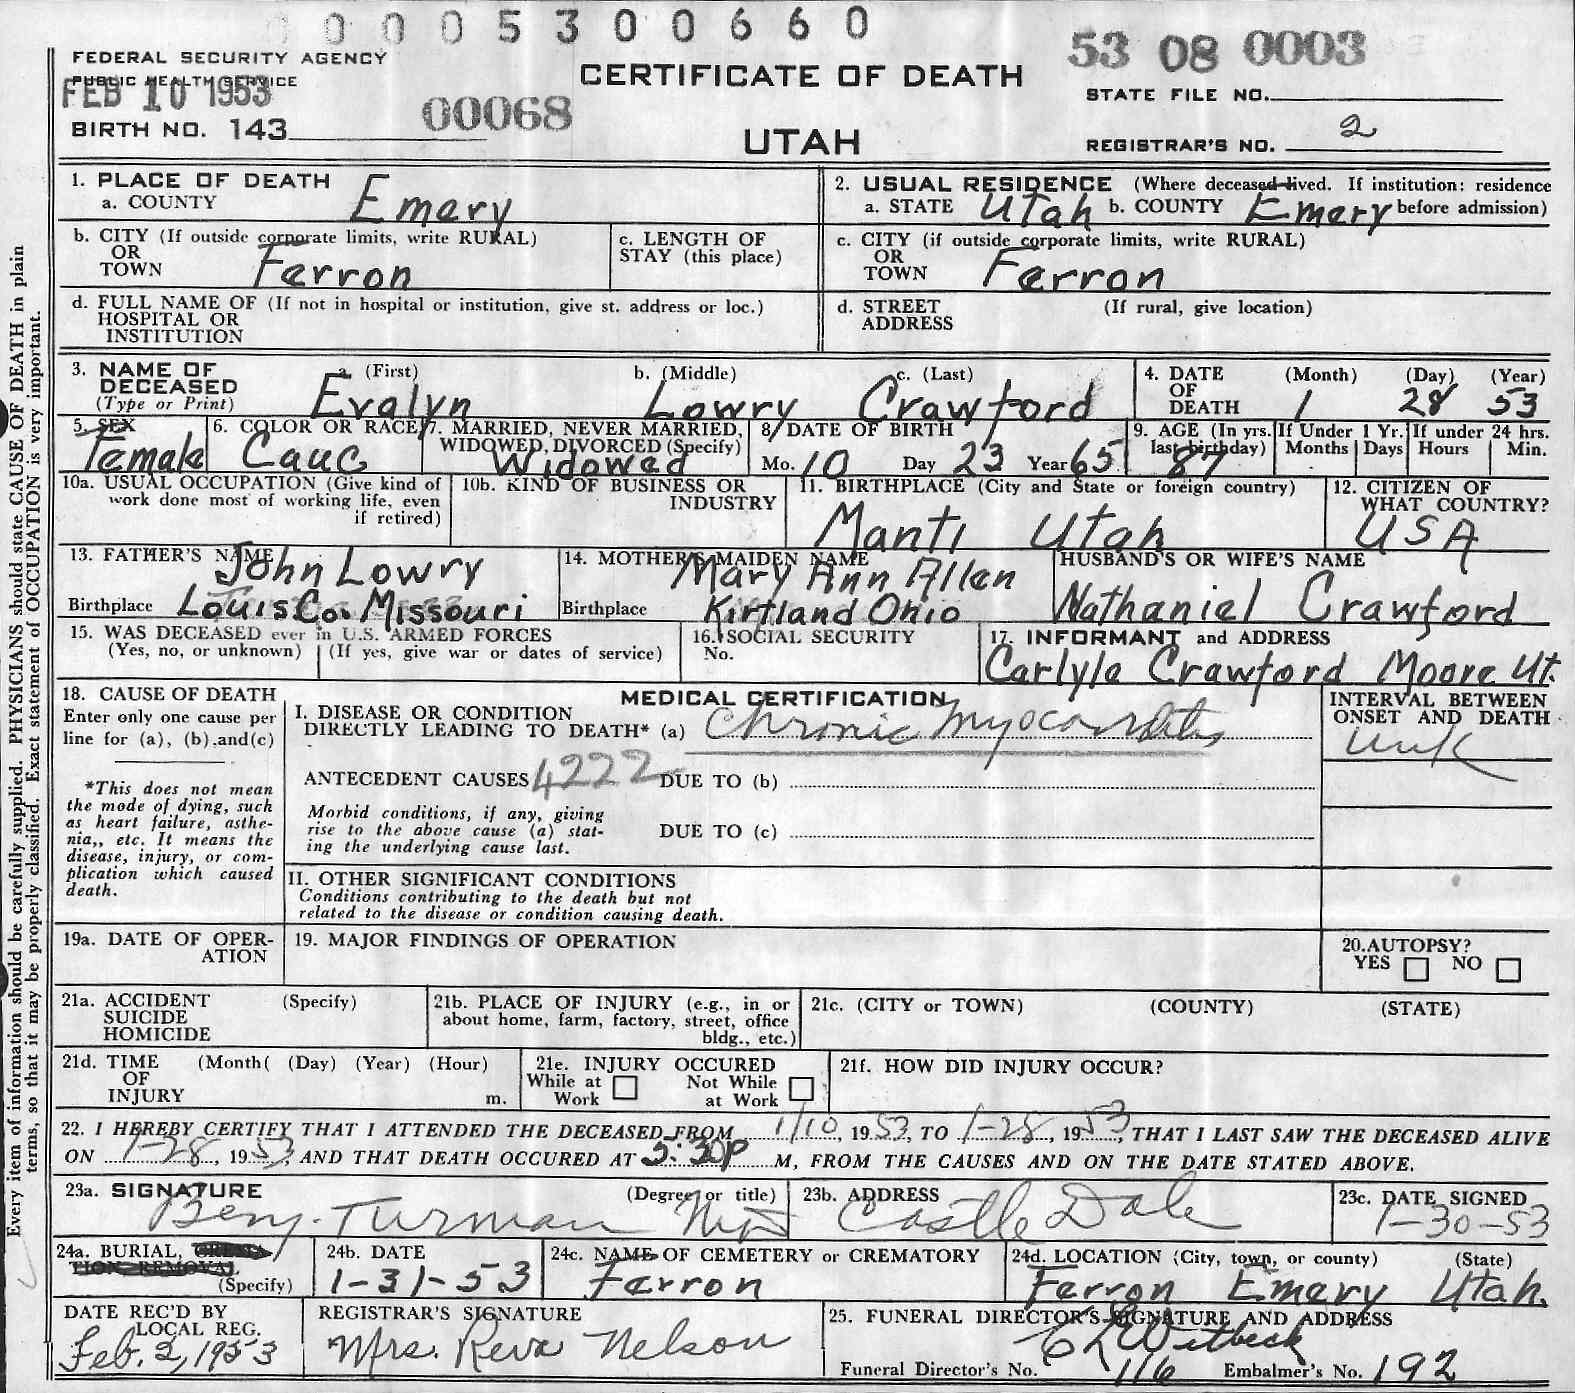 0 0 0 5 3 0 0 6 6 0
53 08 0003
FEDERAL SECURITY AGENCY
PUBLIC HEALTH SERVICE
FEB 10 1953
CERTIFICATE OF DEATH
STATE FILE NO.
BIRTH NO. 143
00068
UTAH
REGISTRAR'S NO. 2
1. PLACE OF DEATH
a. COUNTY Emery
2. USUAL RESIDENCE (Where deceased lived. If institution: residence
a. STATE Utah b. COUNTY Emery before admission)
b. CITY (If outside corporate limits, write RURAL)
OR
TOWN Ferron
c. LENGTH OF
STAY (this place)
c. CITY (if outside corporate limits, write RURAL)
OR
TOWN Ferron
d. FULL NAME OF (If not in hospital or institution, give st. address or loc.)
HOSPITAL OR
INSTITUTION
d. STREET (If rural, give location)
ADDRESS
3. NAME OF DECEASED
(Type or Print)
a. (First) b. (Middle) c. (Last)
Evalyn Lowry Crawford
4. DATE OF DEATH
(Month) (Day) (Year)
1 28 53
5. SEX
Female
6. COLOR OR RACE
Cauc
7. MARRIED, NEVER MARRIED,
WIDOWED, DIVORCED (Specify)
Widowed
8. DATE OF BIRTH
Mo. 10 Day 23 Year 65
9. AGE (In yrs.
last birthday)
87
If Under 1 Yr.
Months Days
If under 24 hrs.
Hours Min.
10a. USUAL OCCUPATION (Give kind of
work done most of working life, even
if retired)
10b. KIND OF BUSINESS OR
INDUSTRY
11. BIRTHPLACE (City and State or foreign country)
Manti Utah
12. CITIZEN OF
WHAT COUNTRY?
USA
13. FATHER'S NAME
John Lowry
Birthplace Louis Co. Missouri
14. MOTHER'S MAIDEN NAME
Mary Ann Allen
Birthplace Kirtland Ohio
HUSBAND'S OR WIFE'S NAME
Nathaniel Crawford
15. WAS DECEASED ever in U.S. ARMED FORCES
(Yes, no, or unknown) (If yes, give war or dates of service)
16. SOCIAL SECURITY
No.
17. INFORMANT and ADDRESS
Carlyle Crawford Moore Ut.
18. CAUSE OF DEATH
Enter only one cause per
line for (a), (b), and (c)
*This does not mean
the mode of dying, such
as heart failure, asthe-
nia,, etc. It means the
disease, injury, or com-
plication which caused
death.
MEDICAL CERTIFICATION
I. DISEASE OR CONDITION
DIRECTLY LEADING TO DEATH* (a) Chronic Myocarditis
INTERVAL BETWEEN
ONSET AND DEATH
Unk
ANTECEDENT CAUSES 4222 DUE TO (b)
Morbid conditions, if any, giving
rise to the above cause (a) stat-
ing the underlying cause last.
DUE TO (c)
II. OTHER SIGNIFICANT CONDITIONS
Conditions contributing to the death but not
related to the disease or condition causing death.
19a. DATE OF OPER-
ATION
19. MAJOR FINDINGS OF OPERATION
20. AUTOPSY?
YES NO
21a. ACCIDENT (Specify)
SUICIDE
HOMICIDE
21b. PLACE OF INJURY (e.g., in or
about home, farm, factory, street, office
bldg., etc.)
21c. (CITY or TOWN) (COUNTY) (STATE)
21d. TIME (Month( (Day) (Year) (Hour)
OF
INJURY m.
21e. INJURY OCCURED
While at Work Not While at Work
21f. HOW DID INJURY OCCUR?
22. I HEREBY CERTIFY THAT I ATTENDED THE DECEASED FROM 1/10, 1953, TO 1-28, 1953, THAT I LAST SAW THE DECEASED ALIVE
ON 1-28, 1953, AND THAT DEATH OCCURED AT 5:30P M, FROM THE CAUSES AND ON THE DATE STATED ABOVE.
23a. SIGNATURE (Degree or title)
Benj. Turman
23b. ADDRESS
Castle Dale
23c. DATE SIGNED
1-30-53
24a. BURIAL,
TION REMOVAL
(Specify)
24b. DATE
1-31-53
24c. NAME OF CEMETERY or CREMATORY
Ferron
24d. LOCATION (City, town, or county) (State)
Ferron Emery Utah.
DATE REC'D BY
LOCAL REG.
Feb. 2, 1953
REGISTRAR'S SIGNATURE
Mrs. Reva Nelson
25. FUNERAL DIRECTOR'S SIGNATURE AND ADDRESS
Witbeck
Funeral Director's No. 116 Embalmer's No. 192
Every item of information should be carefully supplied. PHYSICIANS should state CAUSE OF DEATH in plain
terms, so that it may be properly classified. Exact statement of OCCUPATION is very important.